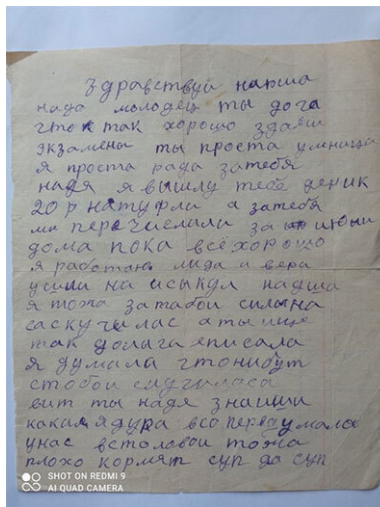 Здравствуй надша
надя молодец ты дога
што так хорошо здаёш
экзамены ты проста умница
я проста рада затебя
надя я вышлу тебе деник
20 р натурли а затебя
мы перечислили за июни
дома пока всё хорошо
я работаю лида и вера
ушли на исыкул надша
я тожа затабои силына
саскучылас а ты ище
так долага неписала
я думала штонибут
стобои случилаca
вит ты надя знаиши
какая я дура всо перва умала
унас встоловои тожа
плохо кормят суп да суп
SHOT ON REDMI 9
AI QUAD CAMERA